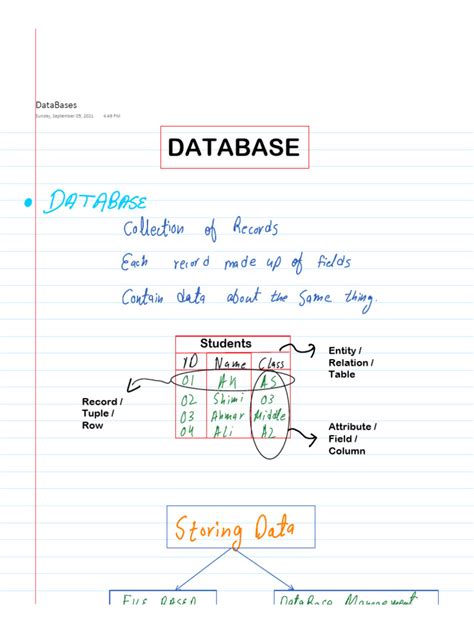 DataBases
Sunday, September 05, 2021 4:49 PM
DATABASE
DATABASE
Collection of Records
Each record made up of fields
Contain data about the same thing.
Students
ID Name Class
01 AK AS
02 Shimi 03
03 Ahmar Middle
04 Ali A2
Entity /
Relation /
Table
Record /
Tuple /
Row
Attribute /
Field /
Column
Storing Data
FILE BASED
DataBase Management